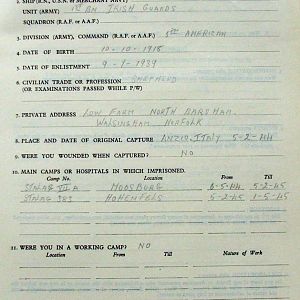 SHIP (R.N., U.S.N. or MERCHANT NAVY)
UNIT (ARMY) 1st BN IRISH GUARDS
SQUADRON (R.A.F. or A.A.F.)
3. DIVISION (ARMY), COMMAND (R.A.F. or A.A.F.) 5th AMERICAN
4. DATE OF BIRTH 10-10-1918
5. DATE OF ENLISTMENT 9-9-1939
6. CIVILIAN TRADE OR PROFESSION SHEPHERD
(OR EXAMINATIONS PASSED WHILE P/W)
7. PRIVATE ADDRESS LOW FARM NORTH BARSHAM
WALSINGHAM NORFOLK
8. PLACE AND DATE OF ORIGINAL CAPTURE ANZIO, ITALY 5-2-44
9. WERE YOU WOUNDED WHEN CAPTURED? NO
10. MAIN CAMPS OR HOSPITALS IN WHICH IMPRISONED.
Camp No. Location From Till
STALAG VII A MOOSBURG 6-5-44 5-2-45
STALAG 383 HOHENFELS 5-2-45 1-5-45
11. WERE YOU IN A WORKING CAMP? NO
Location From Till Nature of Work